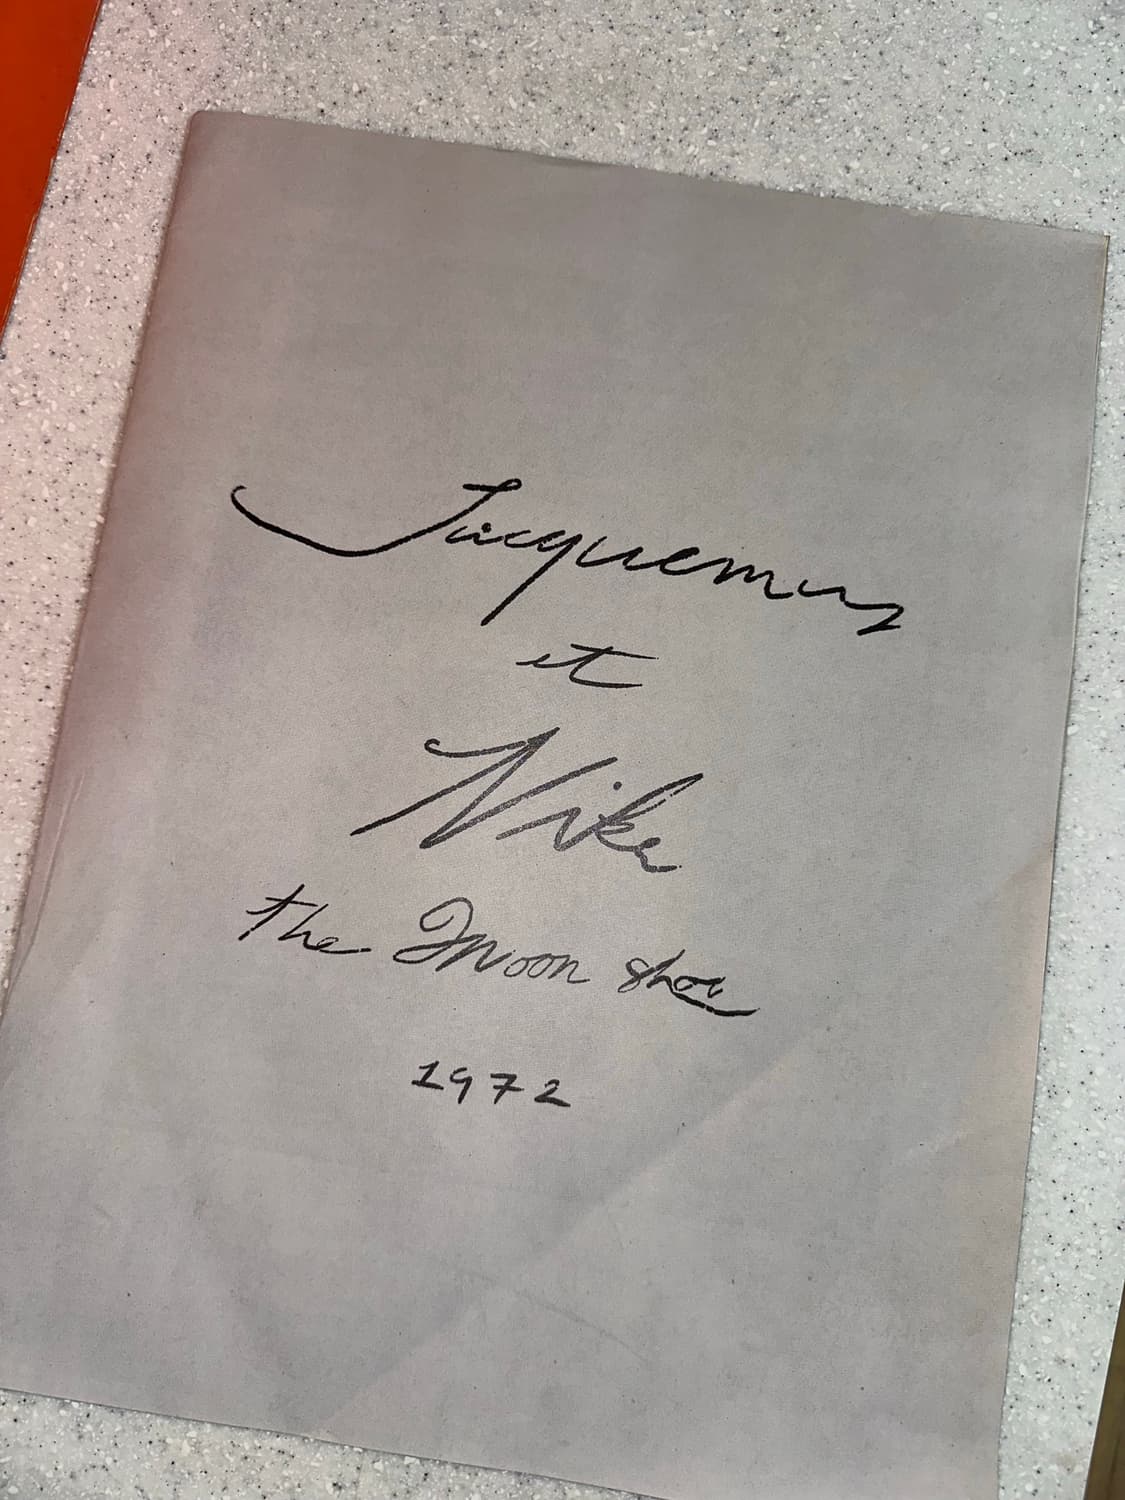 Jacquemus
et
Nike
the Moon shoe
1972